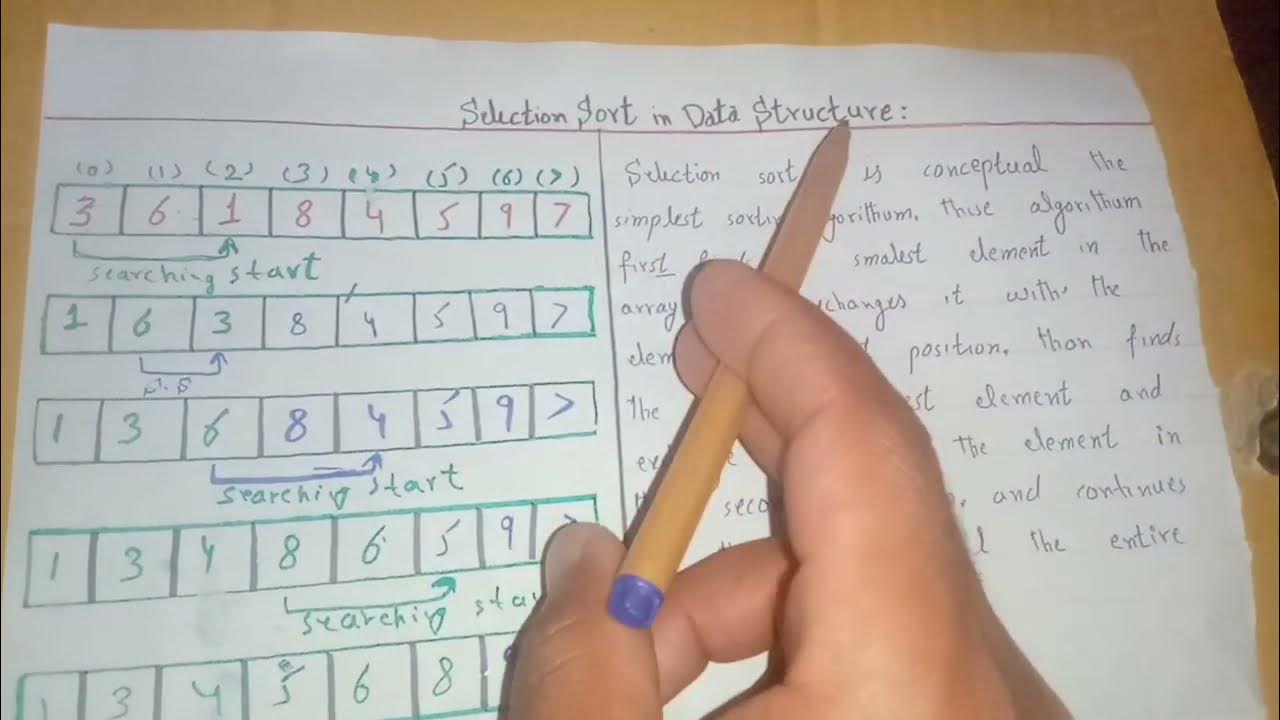 Selection Sort in Data Structure:
(0) (1) (2) (3) (4) (5) (6) (7)
3 6 1 8 4 5 9 7
searching start
1 6 3 8 4 5 9 7
S.S
1 3 6 8 4 5 9 7
searching start
1 3 4 8 6 5 9
searching
1 3 4 5 6 8
Selection sort is conceptual the
simplest algorithum
first smalest element in the
array it with the
position, than finds
The element and
the element in
and continues
the entire